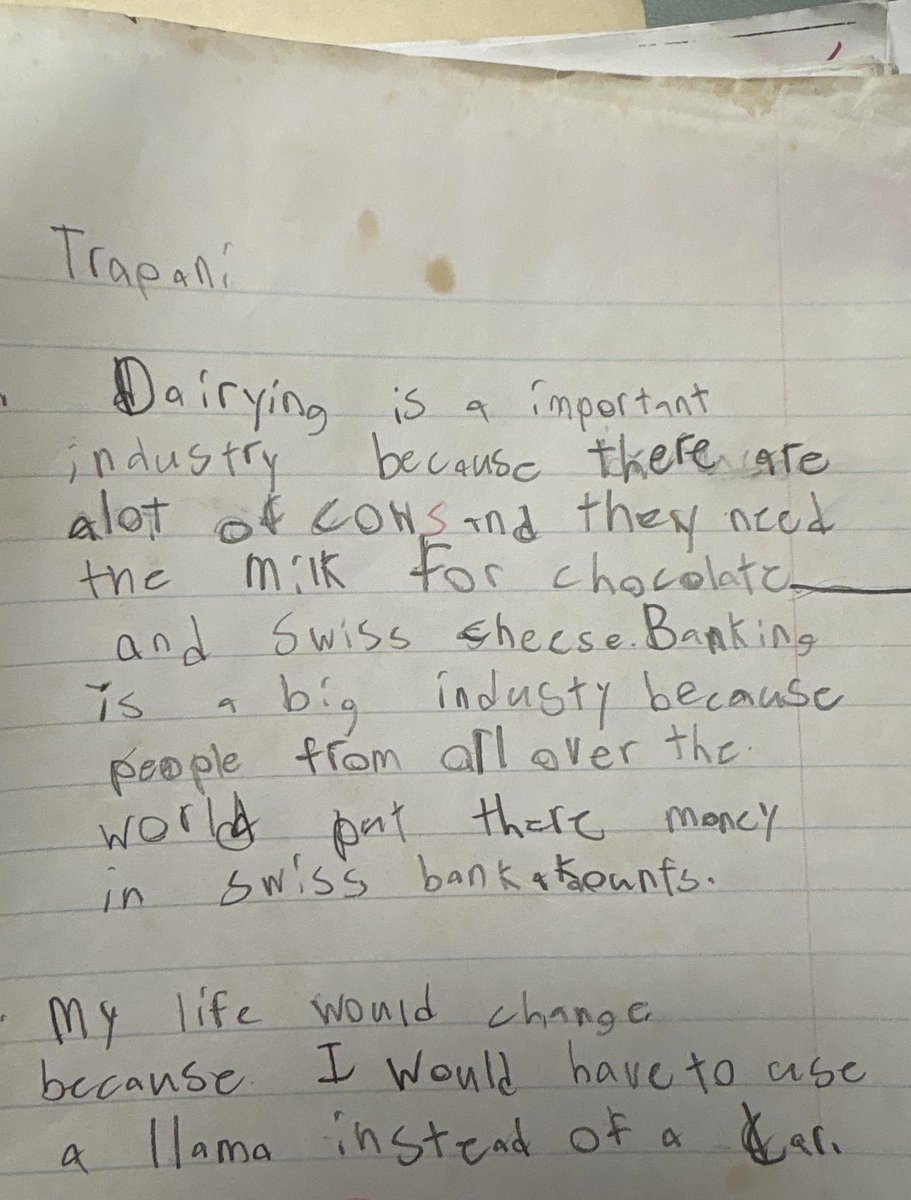 Trapani
Dairying is a important
industry because there are
alot of cows and they need
the milk for chocolate
and Swiss cheese. Banking
is a big industy because
people from all over the
world put there money
in swiss bank akounts.
My life would change
because I would have to use
a llama instead of a car.